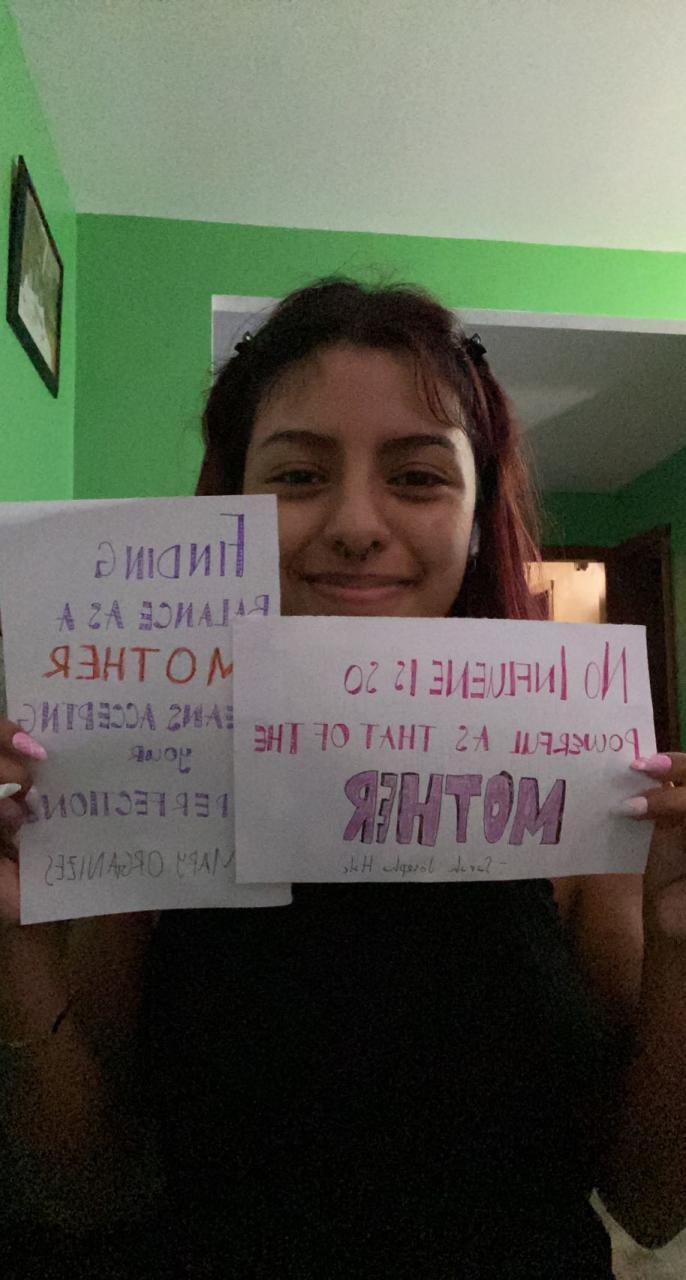 FINDING
BALANCE AS A
MOTHER
EANS ACCEPTING
YOUR
PERFECTION
MARY ORGANIZES
NO INFLUENE IS SO
POWERFUL AS THAT OF THE
MOTHER
- Sarah Josepha Hale